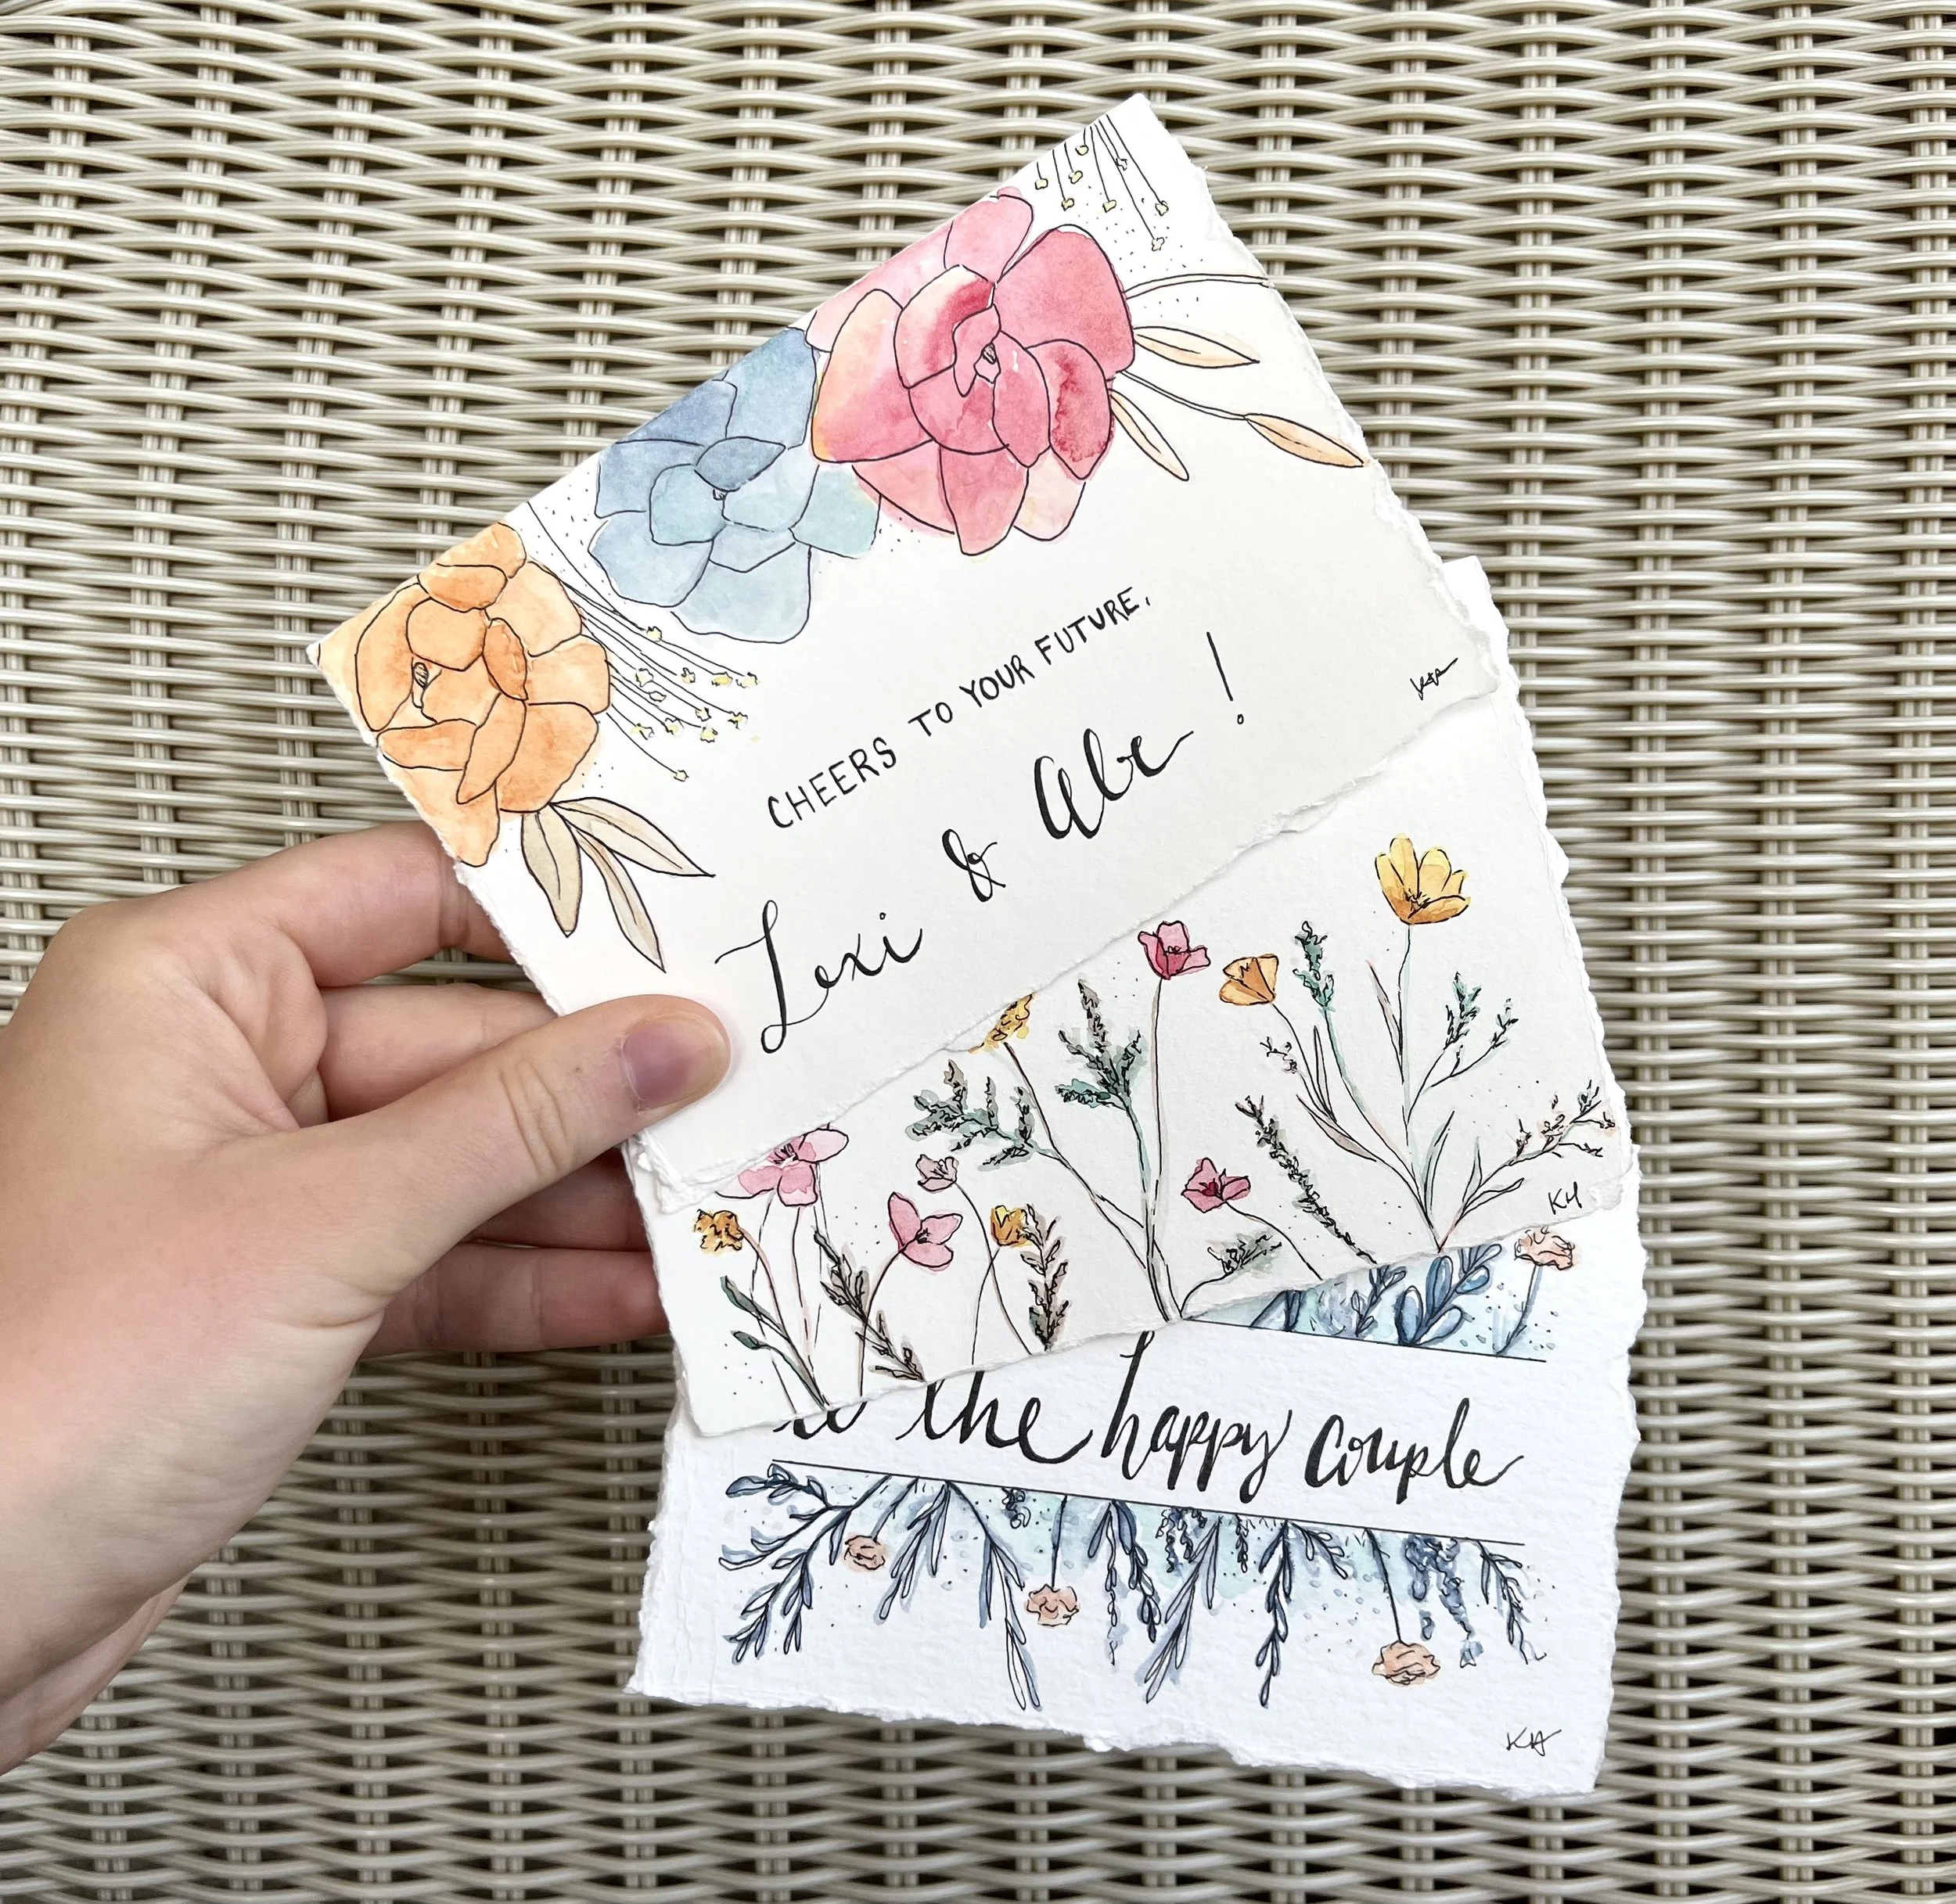 CHEERS TO YOUR FUTURE,
Lexi & Abe!
KH
the happy couple
KH